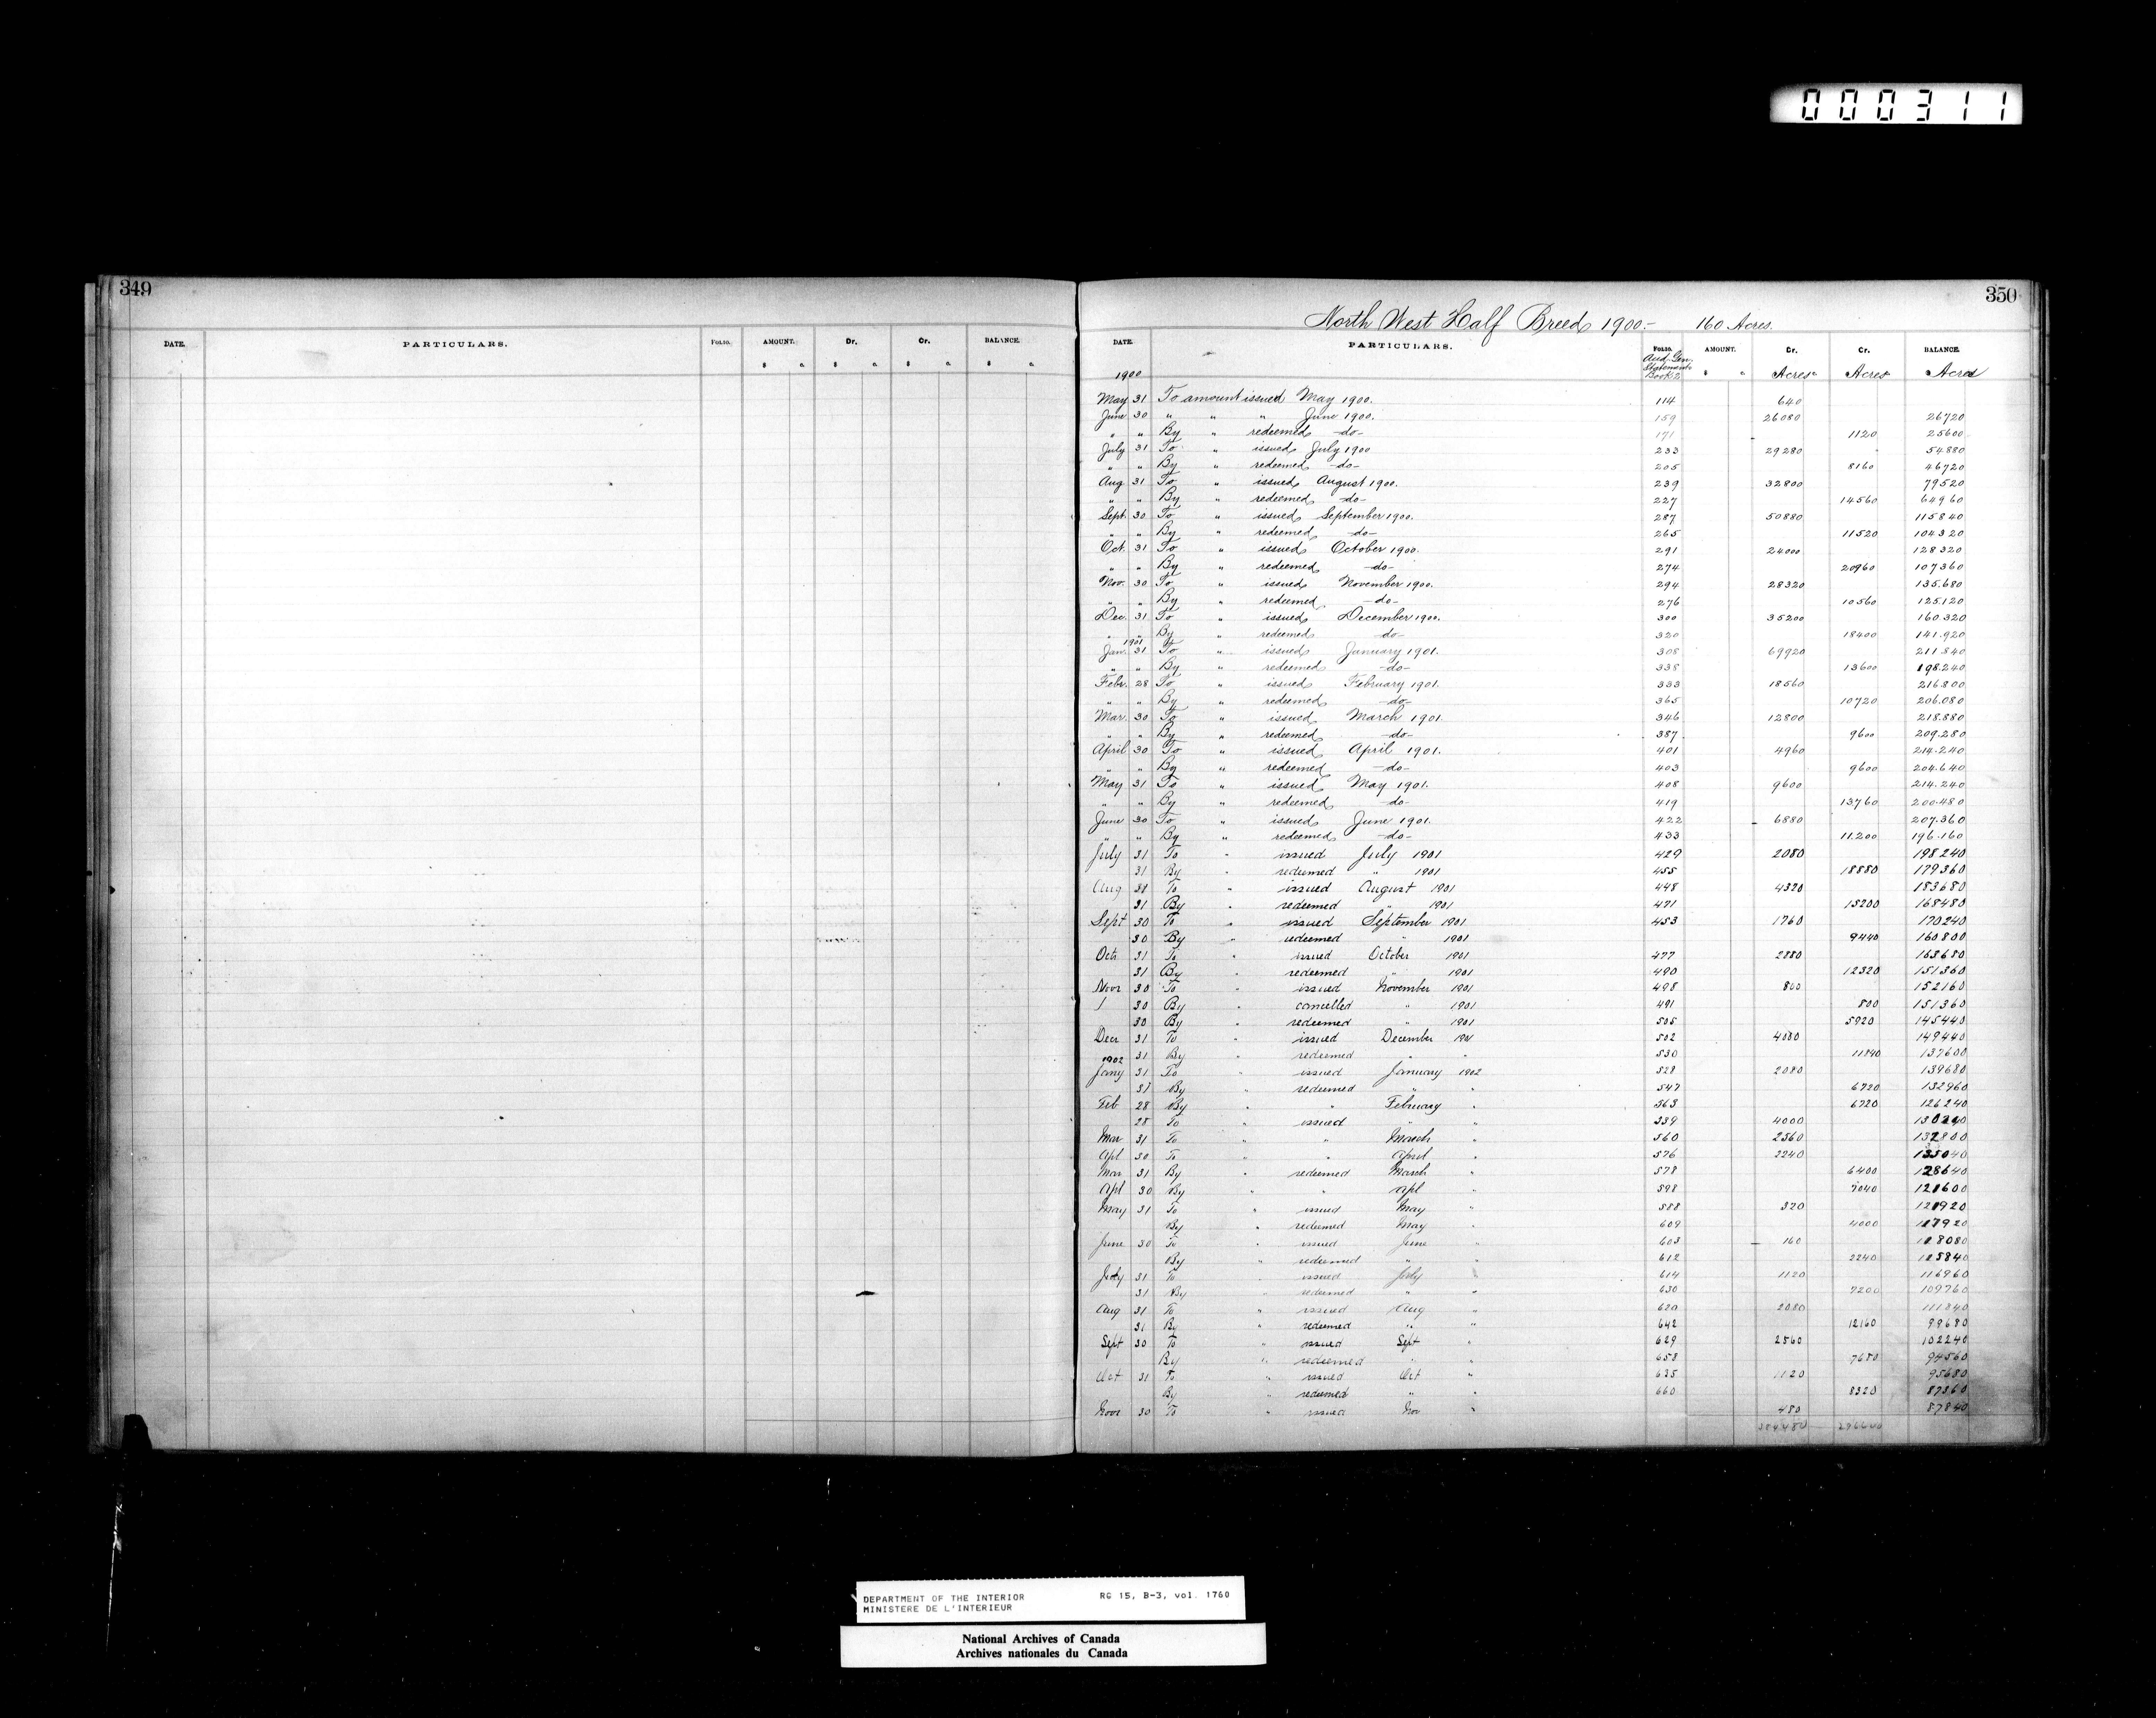 000311
349
DATE. PARTICULARS. FOLIO. AMOUNT. Dr. Cr. BALANCE.
$ c. $ c. $ c. $ c.
350
North West Half Breed 1900.- 160 Acres.
DATE. PARTICULARS. FOLIO. AMOUNT. Cr. Cr. BALANCE.
1900 Aud. Gen. Statement Book 2 $ c. Acres Acres Acres
May 31 To amount issued May 1900. 114 640
June 30 " " " June 1900. 159 26080 26720
" " By " redeemed -do- 171 1120 25600
July 31 To " issued July 1900 233 29280 54880
" " By " redeemed -do- 205 8160 46720
Aug 31 To " issued August 1900. 239 32800 79520
" " By " redeemed -do- 227 14560 64960
Sept. 30 To " issued September 1900. 287 50880 115840
" " By " redeemed -do- 265 11520 104320
Oct. 31 To " issued October 1900. 291 24000 128320
" " By " redeemed -do- 274 20960 107360
Nov. 30 To " issued November 1900. 294 28320 135.680
" " By " redeemed -do- 276 10560 125.120
Dec. 31 To " issued December 1900. 300 35200 160.320
" " By " redeemed -do- 320 18400 141.920
1901
Jan. 31 To " issued January 1901. 308 69920 211.840
" " By " redeemed -do- 338 13600 198.240
Febr. 28 To " issued February 1901. 333 18560 216.800
" " By " redeemed -do- 365 10720 206.080
Mar. 30 To " issued March 1901. 346 12800 218.880
" " By " redeemed -do- 387 9600 209.280
April 30 To " issued April 1901. 401 4960 214.240
" " By " redeemed -do- 403 9600 204.640
May 31 To " issued May 1901. 408 9600 214.240
" " By " redeemed -do- 419 13760 200.480
June 30 To " issued June 1901. 422 6880 207.360
" " By " redeemed -do- 433 11.200 196.160
July 31 To " issued July 1901 429 2080 198240
31 By " redeemed " 1901 455 18880 179360
Aug 31 To " issued August 1901 448 4320 183680
31 By " redeemed " 1901 471 15200 168480
Sept 30 To " issued September 1901 453 1760 170240
30 By " redeemed " 1901 9440 160800
Octr 31 To " issued October 1901 477 2880 163680
31 By " redeemed " 1901 490 12320 151360
Novr 30 To " issued November 1901 498 800 152160
30 By " cancelled " 1901 491 800 151360
30 By " redeemed " 1901 505 5920 145440
Decr 31 To " issued December 1901 502 4000 149440
31 By " redeemed " " 530 11840 137600
1902
Jany 31 To " issued January 1902 528 2080 139680
31 By " redeemed " " 547 6720 132960
Feb 28 By " " February " 563 6720 126240
28 To " issued " " 539 4000 130240
Mar 31 To " " March " 560 2560 132800
Apl 30 To " " April " 576 2240 135040
Mar 31 By " redeemed March " 578 6400 128640
Apl 30 By " " Apl " 598 7040 121600
May 31 To " issued May " 588 320 121920
By " redeemed May " 609 4000 117920
June 30 To " issued June " 603 160 118080
By " redeemed " " 612 2240 115840
July 31 To " issued July " 614 1120 116960
31 By " redeemed " " 630 7200 109760
Aug 31 To " issued Aug " 620 2080 111840
31 By " redeemed " " 642 12160 99680
Sept 30 To " issued Sept " 629 2560 102240
By " redeemed " " 653 7680 94560
Oct 31 To " issued Oct " 635 1120 95680
By " redeemed " " 660 8320 87360
Novr 30 To " issued Nov " 480 87840
384480 296600
DEPARTMENT OF THE INTERIOR RG 15, B-3, vol. 1760
MINISTERE DE L'INTERIEUR
National Archives of Canada
Archives nationales du Canada